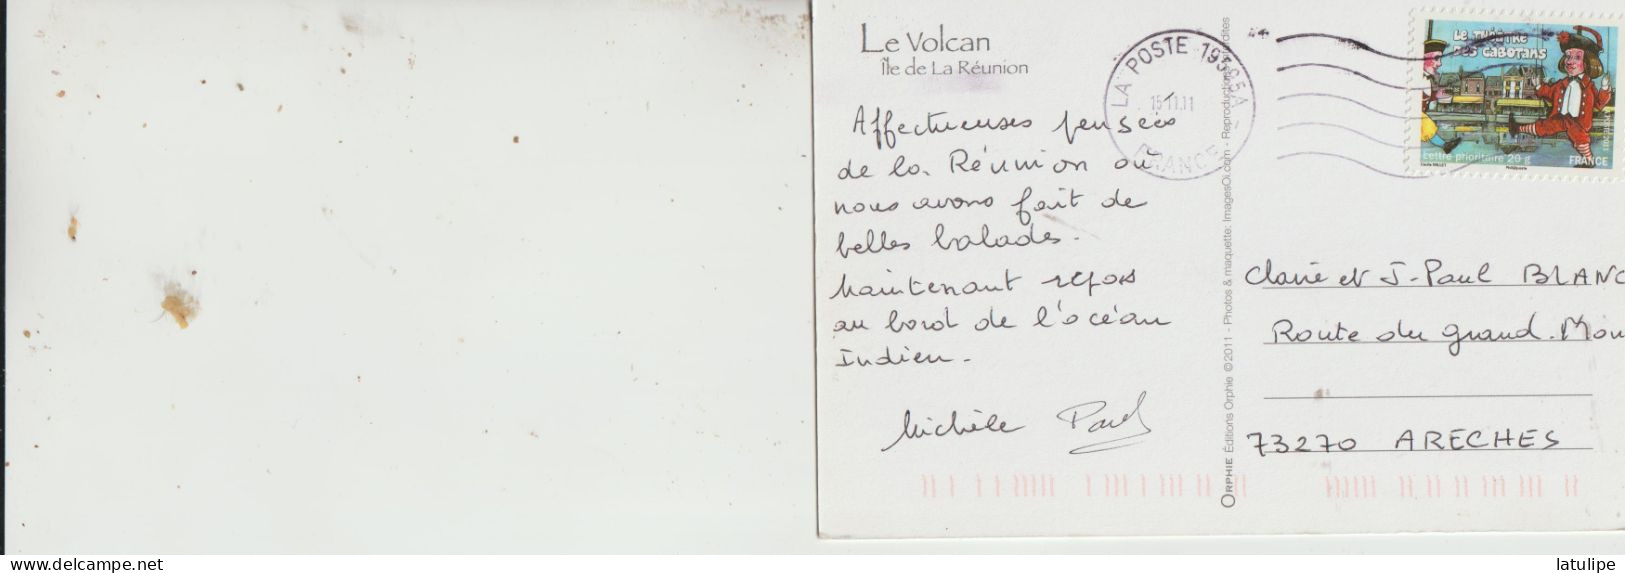 Le Volcan
Île de La Réunion
Affectueuses pensées
de la Réunion où
nous avons fait de
belles balades.
Maintenant repos
au bord de l'océan
Indien.
Michèle Paul
ORPHIE Éditions Orphie ©2011 - Photos & maquette: ImagesOi.com - Reproductions interdites
LA POSTE
15.11.11
FRANCE
LE THÉÂTRE
DES CABOTANS
Lettre prioritaire 20 g
FRANCE
Claire et J-Paul BLANC
Route du grand-Mon
73270 ARECHES
delcampe.net
latulipe